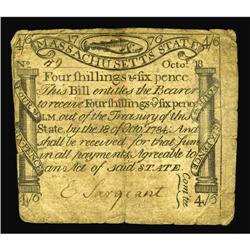 MASSACHUSETTS STATE
4/6 1776 4/6
No 49 Octor. 18
Four shillings & six pence
This Bill entitles the Bearer
to receive Four shillings & six pence
LM. out of the Treasury of this
State, by the 18 of Octor 1784. And
shall be received for that sum
in all payments, Agreeable to
an Act of said STATE.
E Sargeant
4/6 4/6